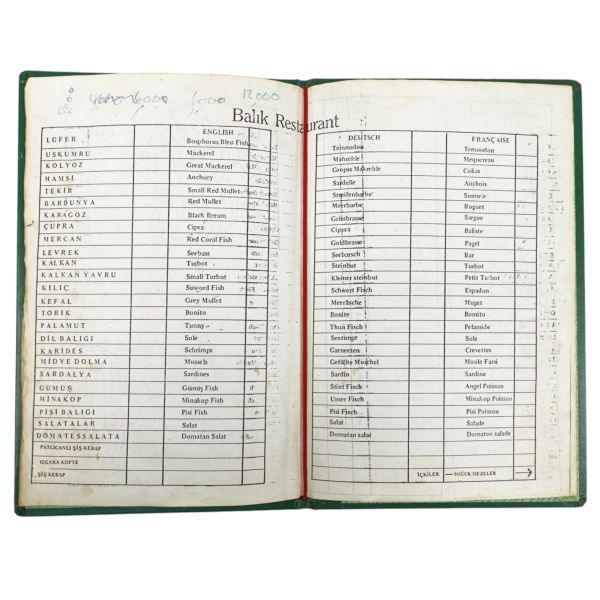 6000
12.000
Balık Restaurant
ENGLISH
LÜFER Bosphorus Bleu Fish
USKUMRU Mackerel
KOLYOZ Great Mackerel
HAMSİ Anchory
TEKİR Small Red Mullet
BARBUNYA Red Mullet
KARAGÖZ Black Bream
ÇUPRA Cipra
MERCAN Red Coral Fish
LEVREK Seebass
KALKAN Turbot
KALKAN YAVRU Small Turbot
KILIÇ Suword Fish
KEFAL Grey Mullet
TORİK Bonito
PALAMUT Tunny
DİL BALIĞI Sole
KARİDES Schrimps
MİDYE DOLMA Mussels
SARDALYA Sardines
GÜMÜŞ Gümüş Fish
MİNAKOP Minakop Fish
PİSİ BALIĞI Pisi Fish
SALATALAR Salat
DOMATESSALATA Domatan Salat
PATLICANLI ŞİŞ KEBAP
IZGARA KÖFTE
ŞİŞ KEBAP
DEUTSCH FRANÇAISE
Temnodon Temnodon
Mahrehle Mequereau
Gropss Makrehle Colias
Sardelle Anchois
Streifenbarbe
Meerbarbe Roguet
Geissbrasse Sargue
Cippra Baliste
Goldbrasse Pagel
Seebarsch Bar
Steinbut Turbot
Kleiner steinbut Petit Turbot
Schwert Fisch Espadon
Meeräsche Muget
Bonite Bonito
Thun Fisch Pelamide
Seezunge Sole
Garneeten Crevettes
Gefülte Muschel Moule Farsi
Sardin Sardine
Stint Fisch Angel Poisson
Umer Fisch Minakop Poisson
Pisi Fisch Pisi Poisson
Salat Salade
Domatan salat Domaton salade
İÇKİLER — SOĞUK MEZELER →